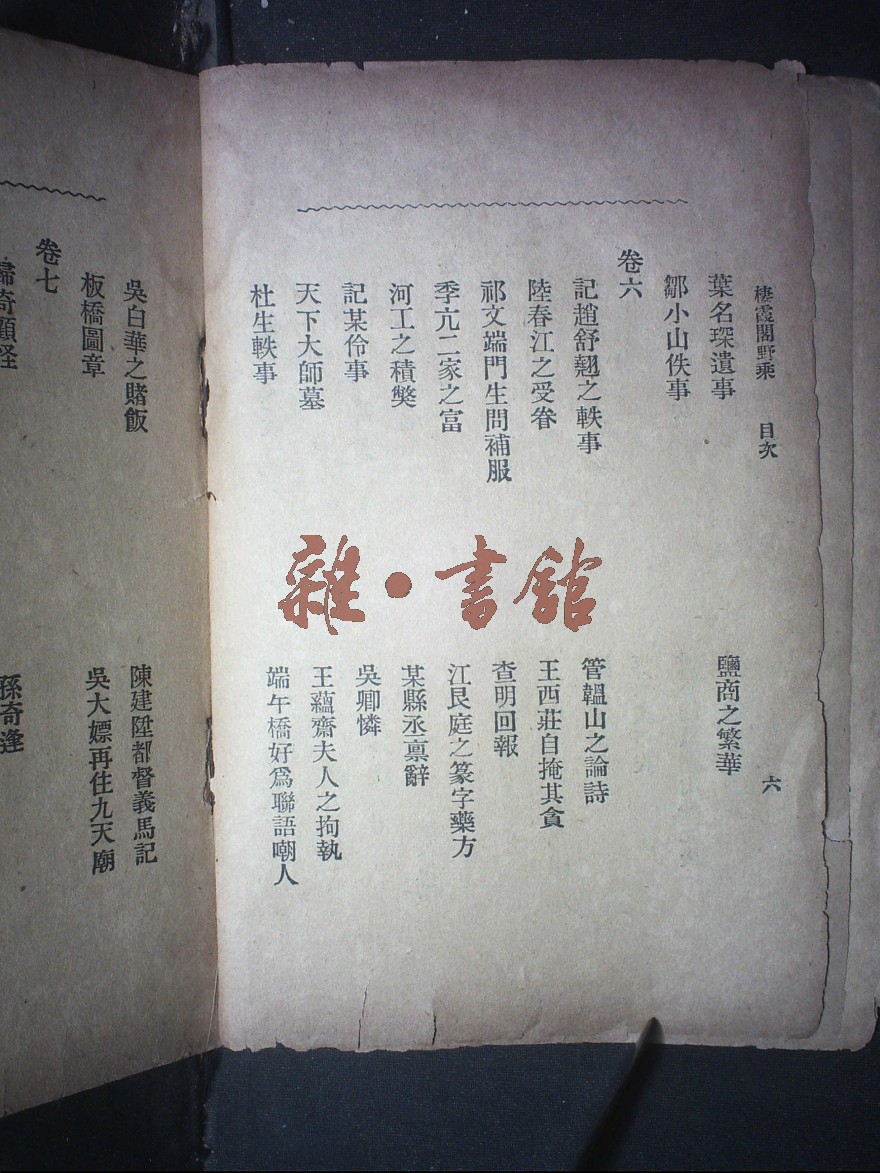 棲霞閣野乘　目次　六
葉名琛遺事　鹽商之繁華
鄒小山佚事
卷六
記趙舒翹之軼事　管韞山之論詩
陸春江之受眷　王西莊自掩其貪
祁文端門生問補服　查明回報
季亢二家之富　江艮庭之篆字藥方
河工之積獘　某縣丞稟辭
記某伶事　吳卿憐
天下大師墓　王蘊齋夫人之拘執
杜生軼事　端午橋好爲聯語嘲人
雜·書館
吳白華之賭飯　陳建陞都督義馬記
板橋圖章　吳大嫖再住九天廟
卷七
孫奇逢